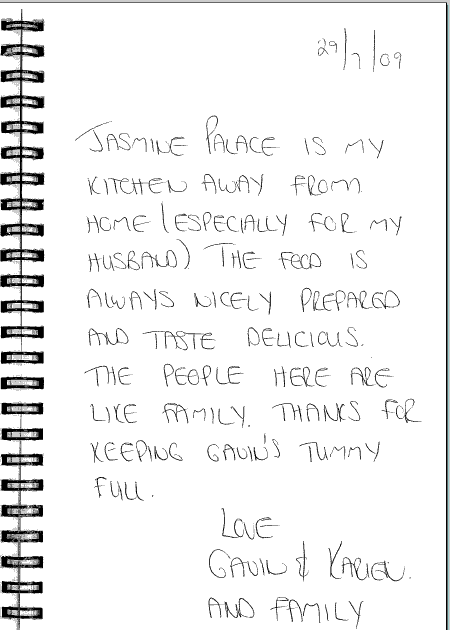 29/7/09
JASMINE PALACE IS MY
KITCHEN AWAY FROM
HOME (ESPECIALLY FOR MY
HUSBAND) THE FOOD IS
ALWAYS NICELY PREPARED
AND TASTE DELICIOUS.
THE PEOPLE HERE ARE
LIKE FAMILY. THANKS FOR
KEEPING GAVIN'S TUMMY
FULL.
LOVE
GAVIN & KAREN.
AND FAMILY